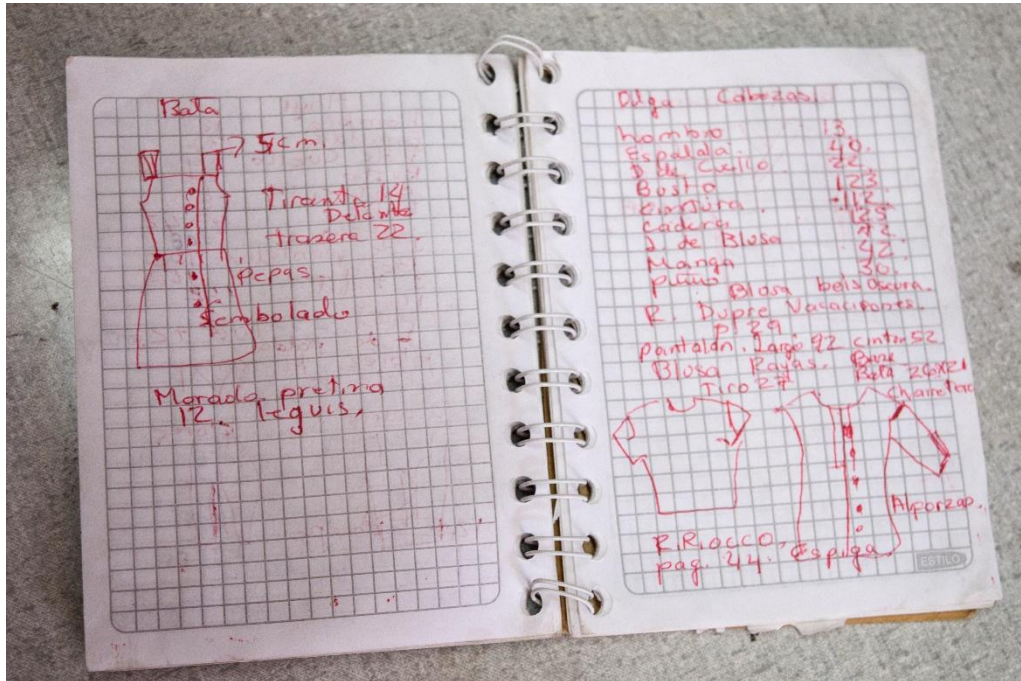 Bata
5cm.
Tirante 14
Delante
trasera 22.
pepas.
Sembolado
Morado pretina
12. leguis.
Olga Cabezas.
hombro 13.
Espalda. 40.
D de Cuello 22.
Busto 123
Cintura. 112
cadera 125
D. de Blusa 42.
Manga 42.
puño 30.
Blosa beis oscura.
R. Dupre Vacaciones.
P. 29
pantalon. Largo 92 cintur 52
Blusa Rayas. Base
Bota 26x21
Tiro 27
charretera
Alporzap.
R.Riocco,
pag. 44. Espiga.
ESTILO